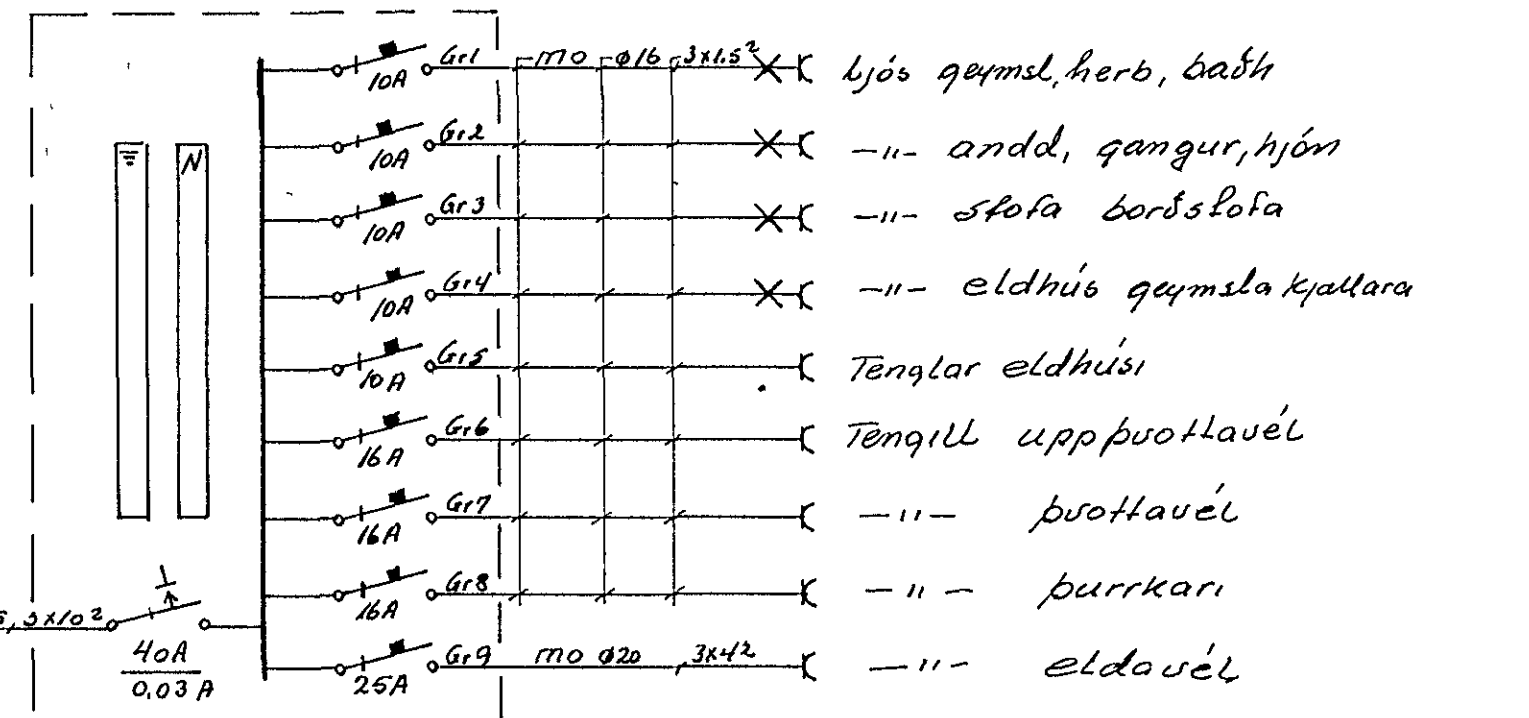 Gr1 mo ø16 3x1.5² Ljós geymsl, herb, baðh
10A
Gr2 -"- andd, gangur, hjón
10A
N
Gr3 -"- stofa borðstofa
10A
Gr4 -"- eldhús geymsla kjallara
10A
Gr5 Tenglar eldhúsi
10A
Gr6 Tengill uppþvottavél
16A
Gr7 -"- þvottavél
16A
Gr8 -"- þurrkari
16A
3x10²
40A
0.03A
Gr9 mo ø20 3x4² -"- eldavél
25A